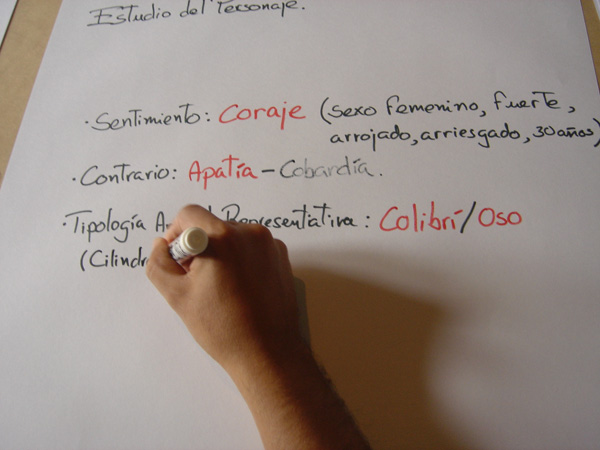 Estudio del Personaje.
· Sentimiento: Coraje (sexo femenino, fuerte,
arrojado, arriesgado, 30 años)
· Contrario: Apatía – Cobardía.
· Tipología Representativa: Colibrí/Oso